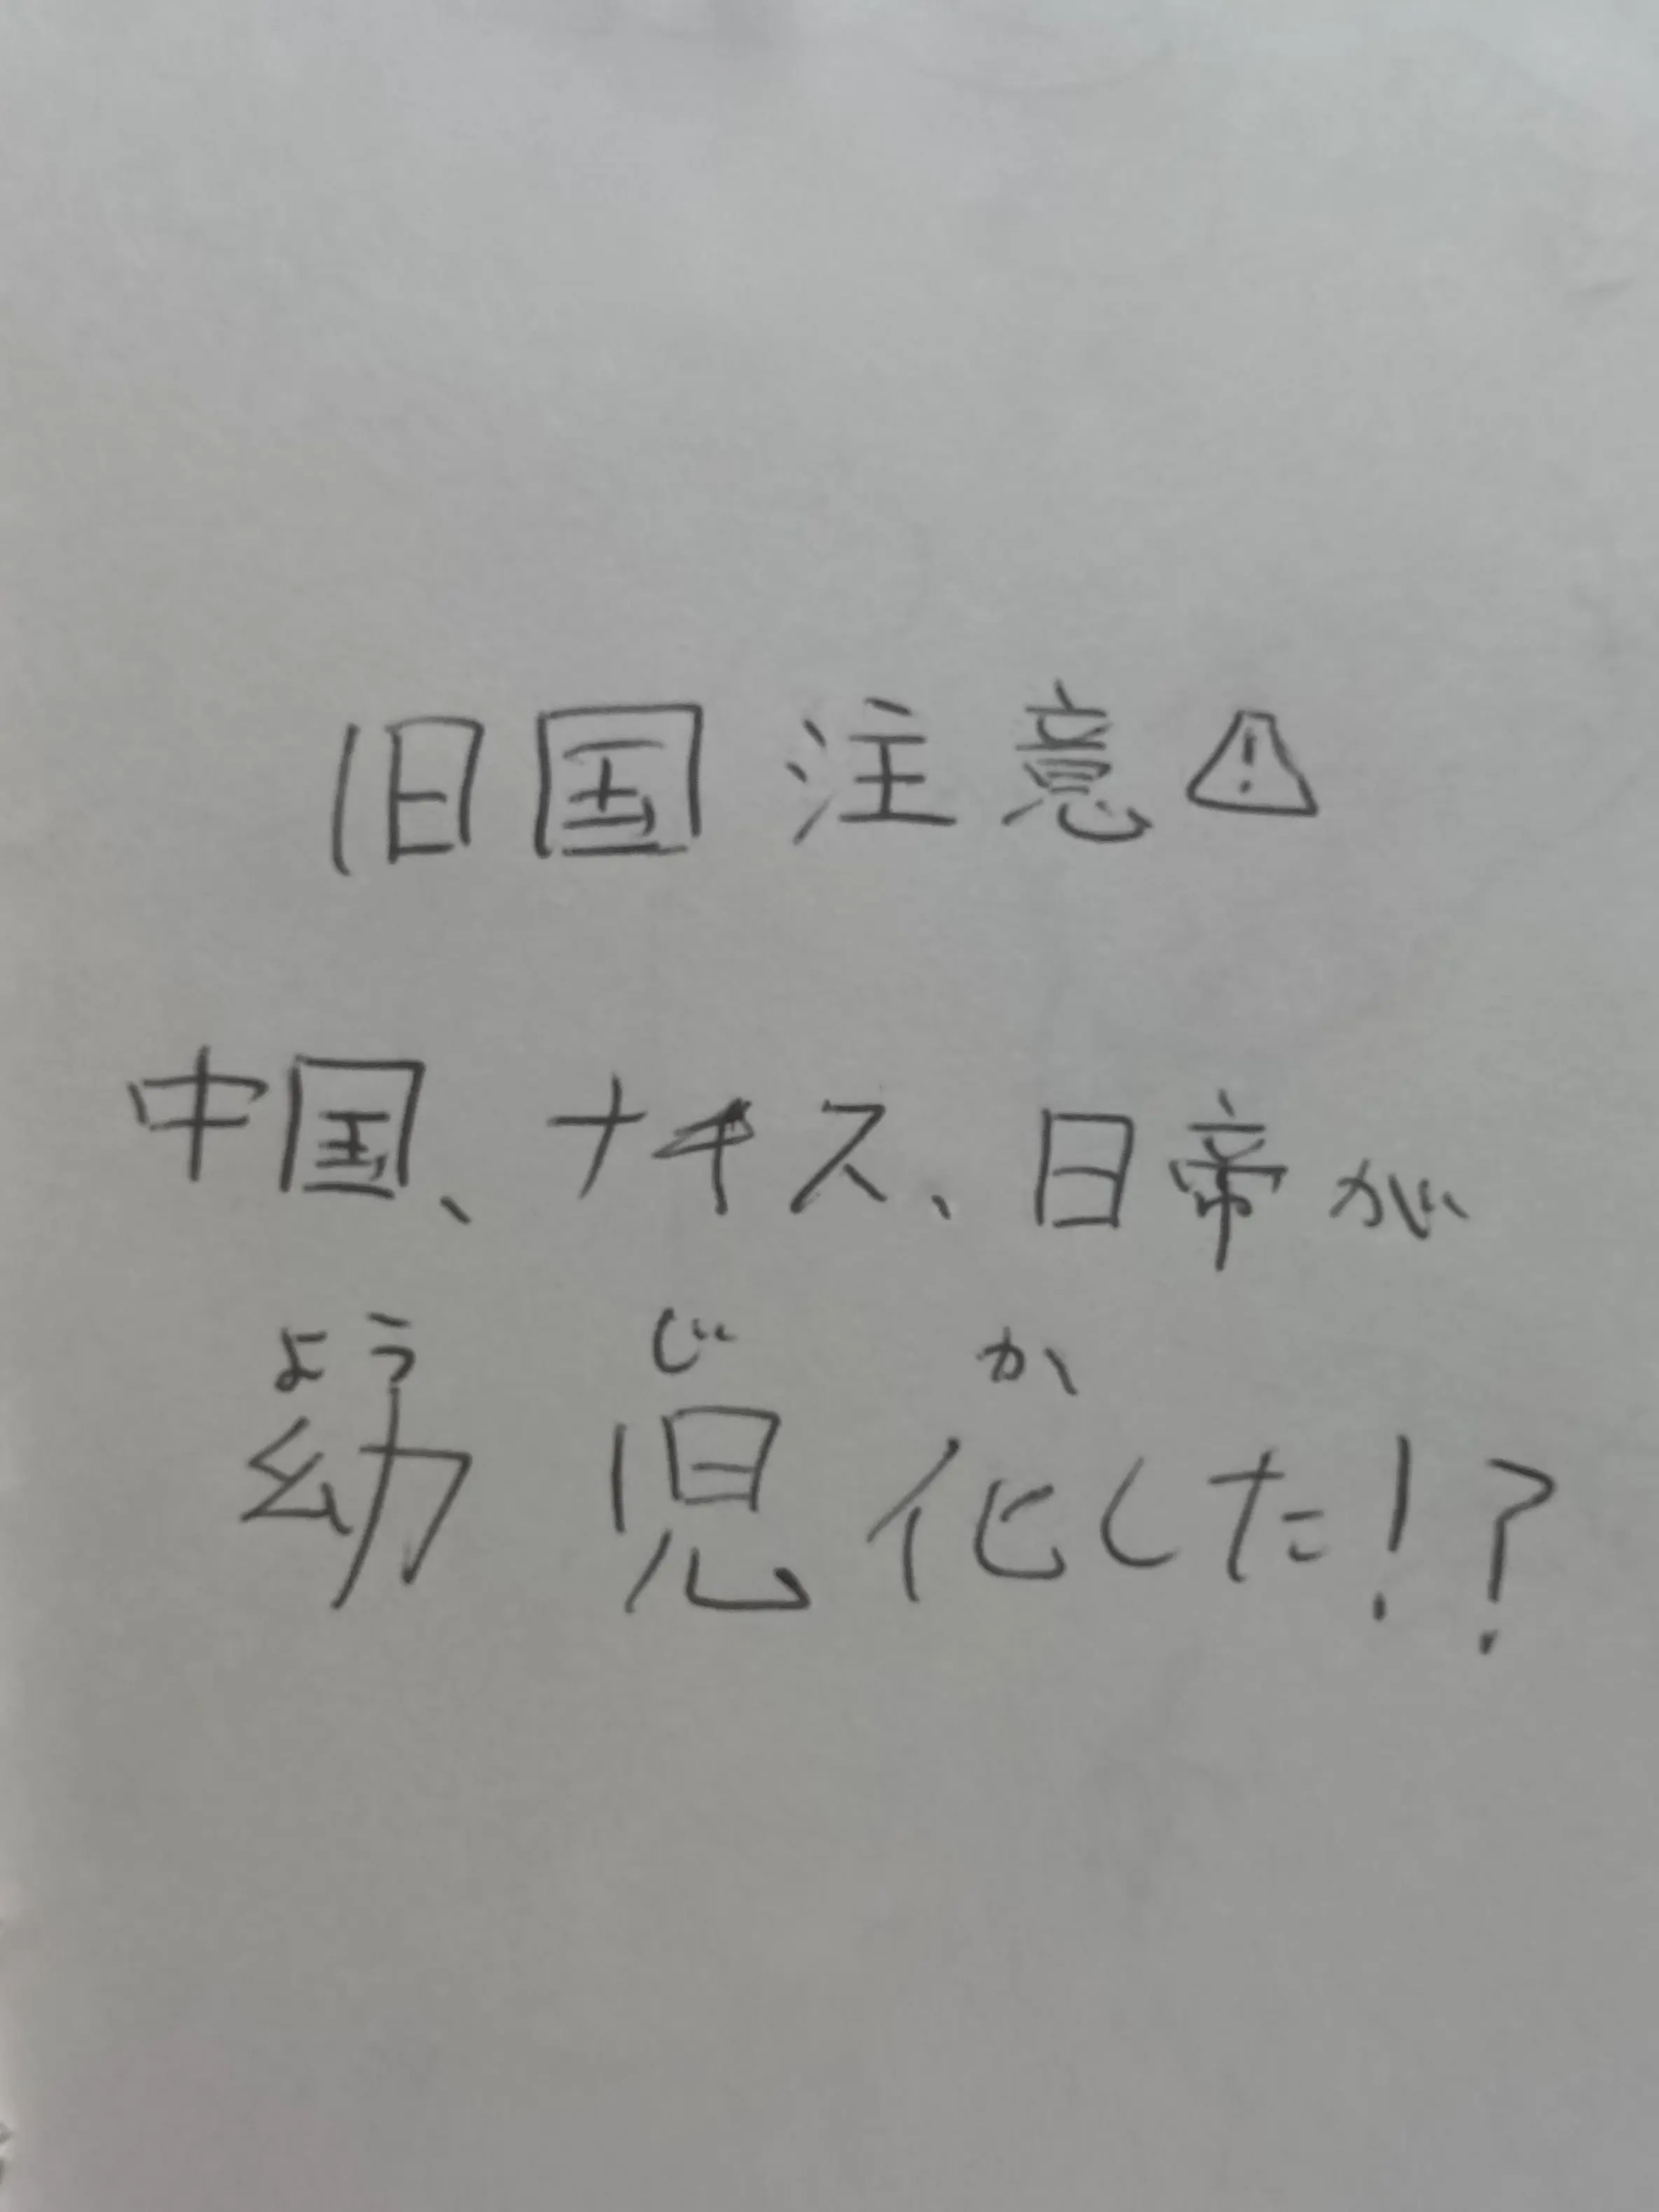 旧国注意⚠
中国、ナチス、日帝が
ようじか
幼児化した!?